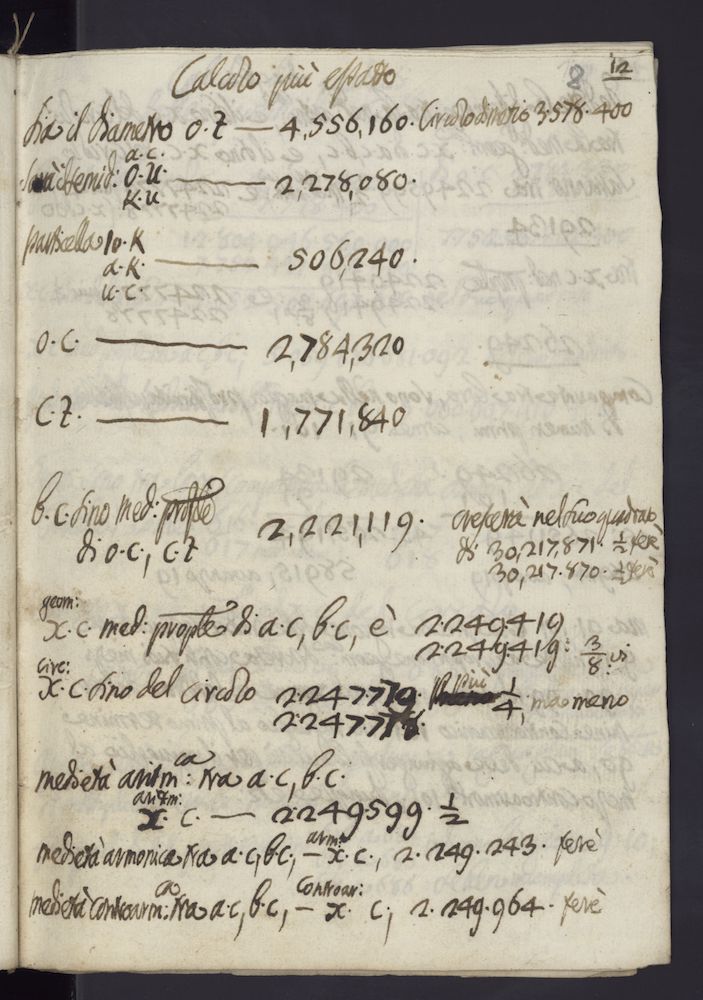 8 12
Calcolo più esatto
Sia il Diametro o.z — 4,556,160. Circolo dimetis 3.578.400
a.c.
Sarà il semid: o.u. — 2,278,080.
K.u
particella 10.K
a.K. — 506,240.
u.c.
o.c. — 2,784,320
c.z. — 1,771,840
b.c. sino med: prople
di o.c., c.z 2,221,119. crescerà nel suo quadrato
di 30,217,871. 1/2 ferè
30,217.870. 1/2 ferè
geom:
x.c. med: prople di a.c, b.c, è 2249419
2249419: 3/8
circ:
x.c. sino del circolo 2247779. più 1/4, ma meno
2247778.
medietà aritm:ca tra a.c, b.c.
aritm:
x. c. — 2249599. 1/2
medietà armonica tra a.c, b.c, — arm: x.c., 2.249.243. ferè
medietà contrarm:ca tra a.c, b.c, — controar: x. c, 2.249.964. ferè